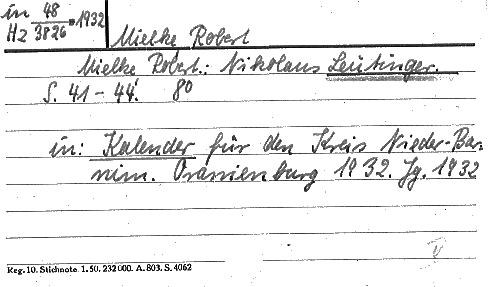 in 48
Hz 3826=1932
Mielke Robert
Mielke Robert: Nikolaus Leutinger.
S. 41-44. 8o
in: Kalender für den Kreis Nieder-Bar-
nim. Oranienburg 1932. Jg. 1932
Reg. 10. Stichnote. 1. 50. 232000. A. 803. S. 4062